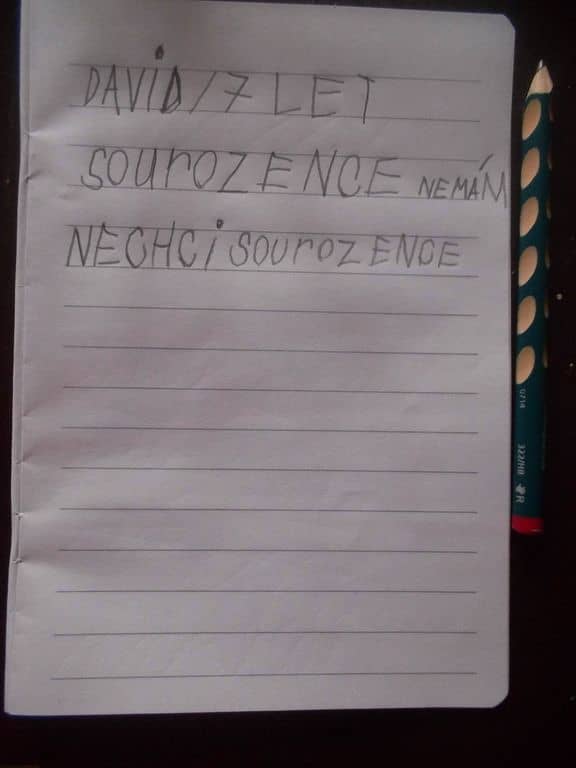 DAViD/7 LET
SOUrOZENCE NEMÁM
NECHCi SOUrOZENCE
322/HB